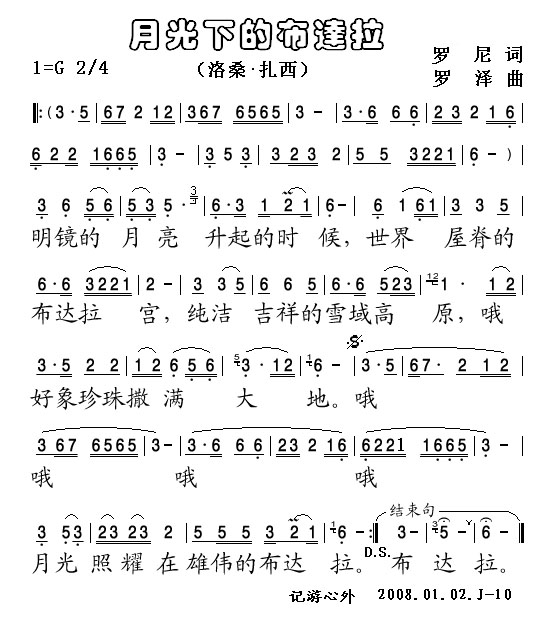 月光下的布達拉
1=G 2/4
（洛桑·扎西）
罗 尼 词
罗 泽 曲
‖:(3·5|67 2 12|367 6565|3 -|3·6 6 6|2 3 2 1 6|
6 2 2 1665|3 -|3 5 3|3 2 3|5 5 3221|6 -)|
3 6 5 6|5 3 5 3|6·3 1 2 1|6-|6 1 61|3 3 5|
明镜的 月 亮 升起的时 候，世界 屋脊的
6·6 3221|2 -|3 3 5|6 5 6|5·6 523|12 1 · 1 2|
布达拉 宫，纯洁 吉祥的雪域高 原，哦
3·5 2 2|1 2 6 5 6|5 3·12|1 6·|3·5|67· 2 1 2|
好象珍珠撒 满 大 地。哦
3 67 6565|3-|3·6 6 6|23 2 16|6221 1665|3 -|
哦 哦 哦
结束句
3 5 3|23 23 2|5 5 5 3 2 1|1 6 -:‖ 3-|3 5-|6 -‖
D.S.
月光 照耀 在雄伟的布达 拉。布 达 拉。
记游心外 2008.01.02.J-10